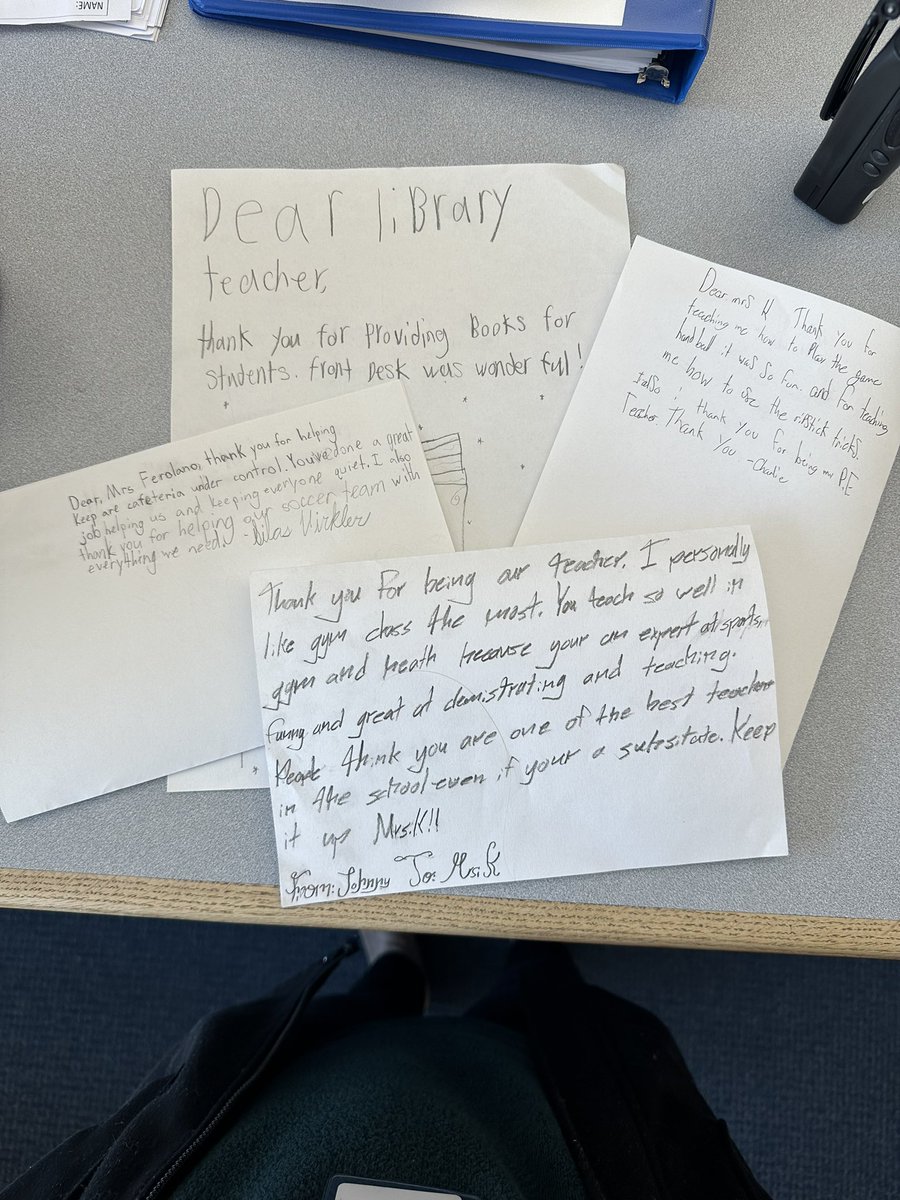 NAME:
Dear liBrary
teacher,
thank you for Providing Books for
students. front Desk was wonderful!
Dear mrs K Thank you for
teaching me how to Play the game
handball it was so fun. and for teaching
me how to use the ripstick tricks.
I also thank you for being my P.E
Teacher. Thank You -Charlie
Dear, Mrs Ferolano, thank you for helping
keep are cafeteria under control. You've done a great
job helping us and keeping everyone quiet. I also
thank you for helping our soccer team with
everything we need. -Silas Virkler
Thank you for being our teacher. I personally
like gym class the most. You teach so well in
gym and heath because your an expert at sports,
funny and great at demistrating and teaching.
People think you are one of the best teachers
in the school even if your a subsitate. Keep
it up Mrs.K!!
From: Johnny To: Mrs.K